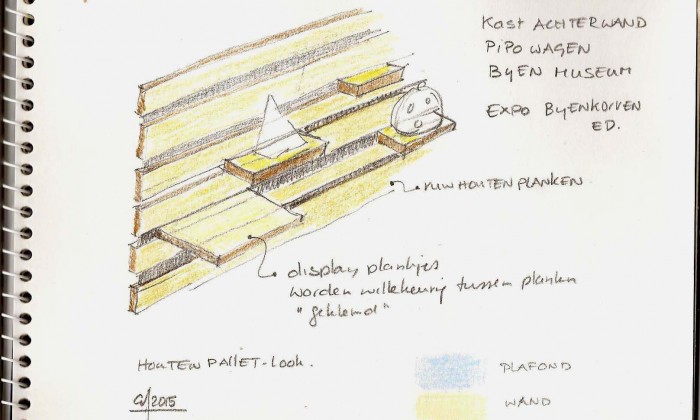 Kast ACHTERWAND
PiPo WAGEN
ByEN MUSEUM
EXPO ByENKORVEN
ED.
ruw HOUTEN PLANKEN
display plankjes
worden willekeurig tussen planken
"geklemd"
HOUTEN PALLET-LOOK.
PLAFOND
2015
WAND